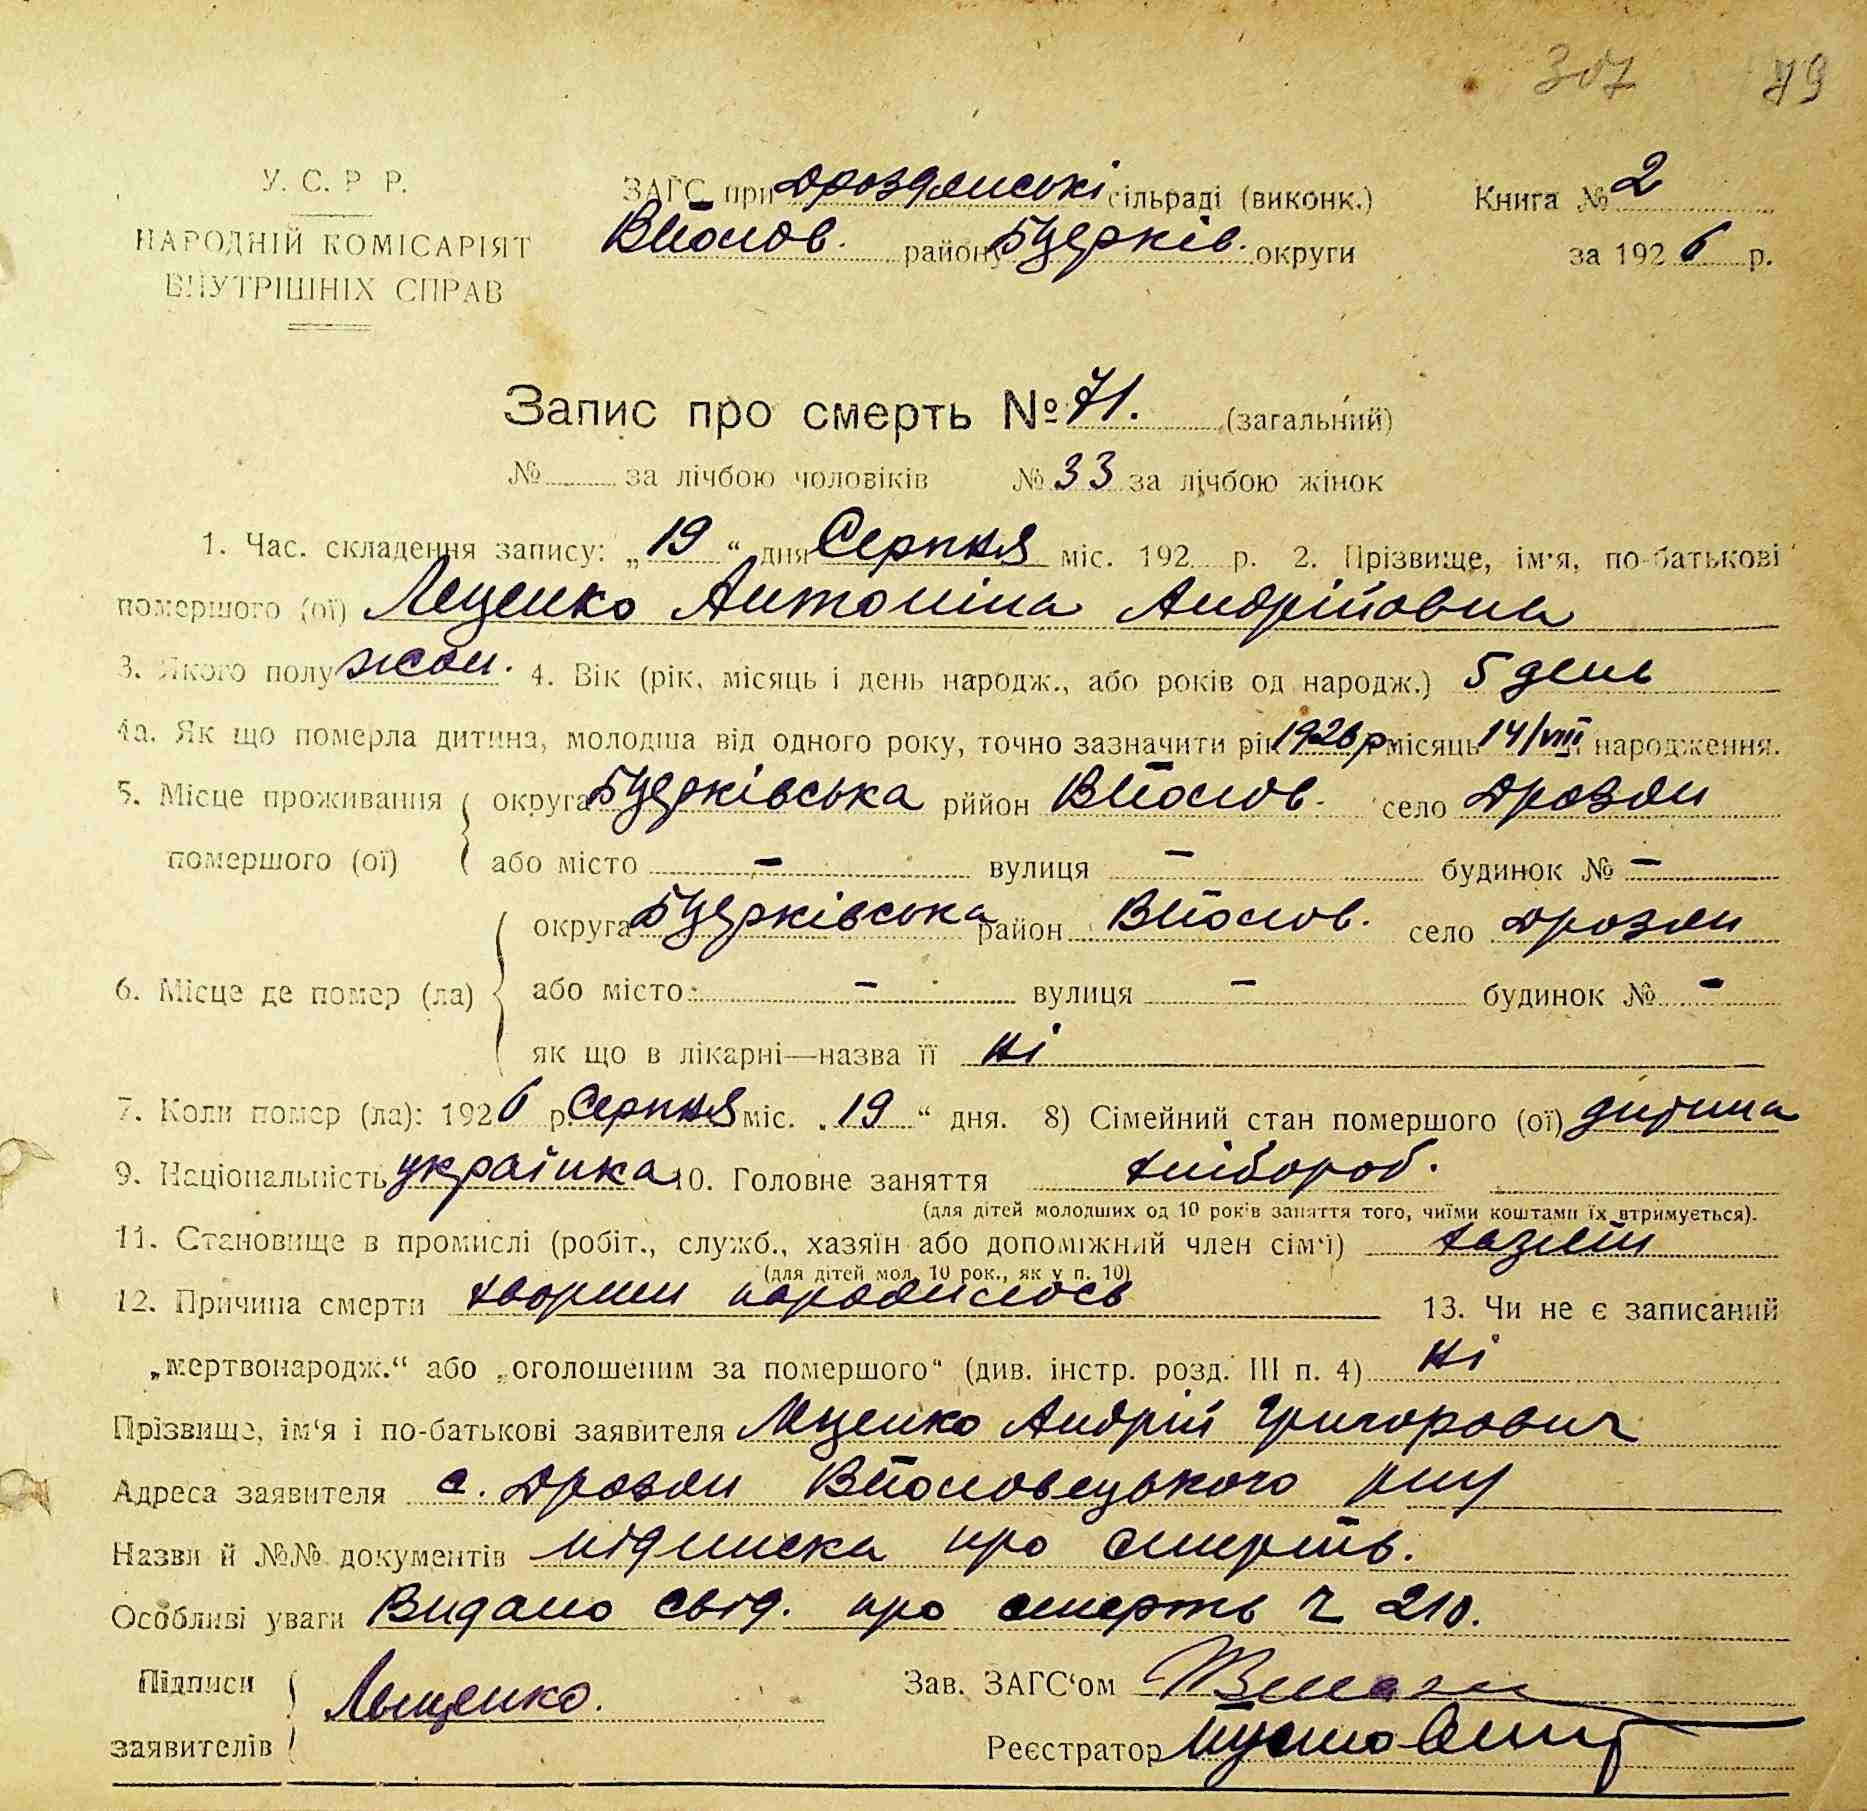 307 79
У. С. Р Р.
НАРОДНІЙ КОМІСАРІЯТ
ВНУТРІШНІХ СПРАВ
ЗАГС при Дроздянські сільраді (виконк.)
району Бцерків. округи
Книга № 2
за 1926 р.
Запис про смерть № 71. (загальний)
№ за лічбою чоловіків № 33 за лічбою жінок
1. Час. складення запису: „19“ дня Серпня міс. 192 р. 2. Прізвище, ім'я, по-батькові
помершого (ої) Лещенко Антоніна Андрійовна
3. Якого полу жон. 4. Вік (рік, місяць і день народж., або років од народж.) 5 день
4а. Як що померла дитина, молодша від одного року, точно зазначити рік 1926 р місяць 14/VIII народження.
5. Місце проживання помершого (ої)
округа Бцерківська рййон село Дрозди
або місто — вулиця — будинок № —
6. Місце де помер (ла)
округа Бцерківська район село Дрозди
або місто — вулиця — будинок № —
як що в лікарні—назва її ні
7. Коли помер (ла): 1926 р. Серпня міс. „19“ дня. 8) Сімейний стан помершого (ої) дитина
9. Національність українка 10. Головне заняття хлібороб.
(для дітей молодших од 10 років заняття того, чиїми коштами їх втримується).
11. Становище в промислі (робіт., служб., хазяїн або допоміжний член сім'ї) хазяїн
(для дітей мол. 10 рок., як у п. 10)
12. Причина смерти хворим народилось 13. Чи не є записаний
„мертвонародж.“ або „оголошеним за помершого“ (див. інстр. розд. III п. 4) ні
Прізвище, ім'я і по-батькові заявителя Лещенко Андрій Григорович
Адреса заявителя с. Дрозди
Назви й №№ документів підписка про смерть.
Особливі уваги Видано свід. про смерть Ч 210.
Підписи заявителів Лещенко.
Зав. ЗАГС'ом
Реєстратор